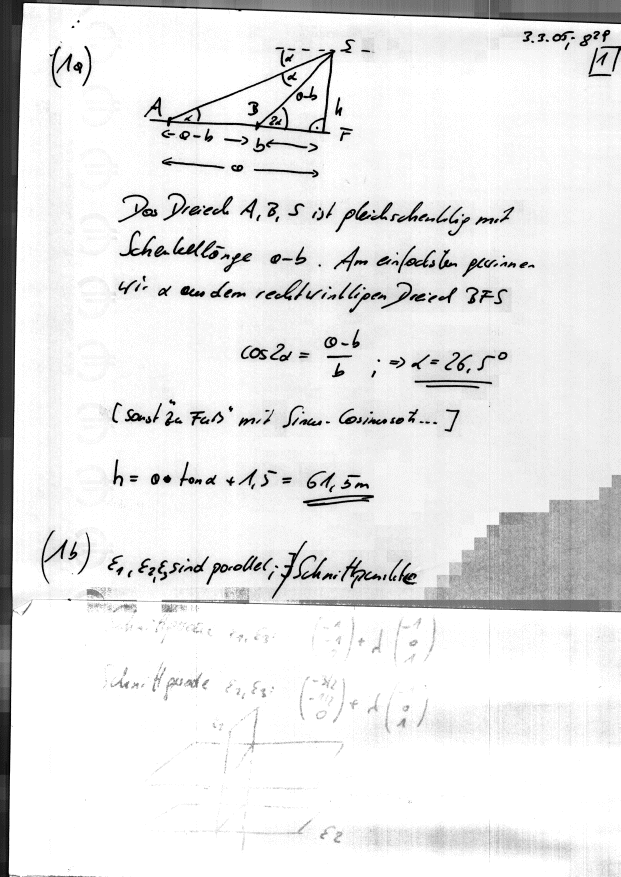 3.3.05; 8²⁹
1
(1a)
S
α
α
a-b
h
A
α
B
2α
F
a-b
b
a
Das Dreieck A, B, S ist gleichschenklig mit
Schenkellänge a-b. Am einfachsten gewinnen
wir α aus dem rechtwinkligen Dreieck BFS
cos2α = a-b / b ; ⇒ α = 26,5°
[sonst "zu Fuß" mit Sinus- Cosinussatz...]
h = a • tanα + 1,5 = 61,5m
(1b) ε₁, ε₂, ε₃ sind parallel; ∄ Schnittpunkte
ε₁, ε₃: (-1 -1) + λ (-1 0 1)
Schnittgerade ε₂, ε₃: (-3/2 -1/2 0) + λ ( 0 1)
ε₂